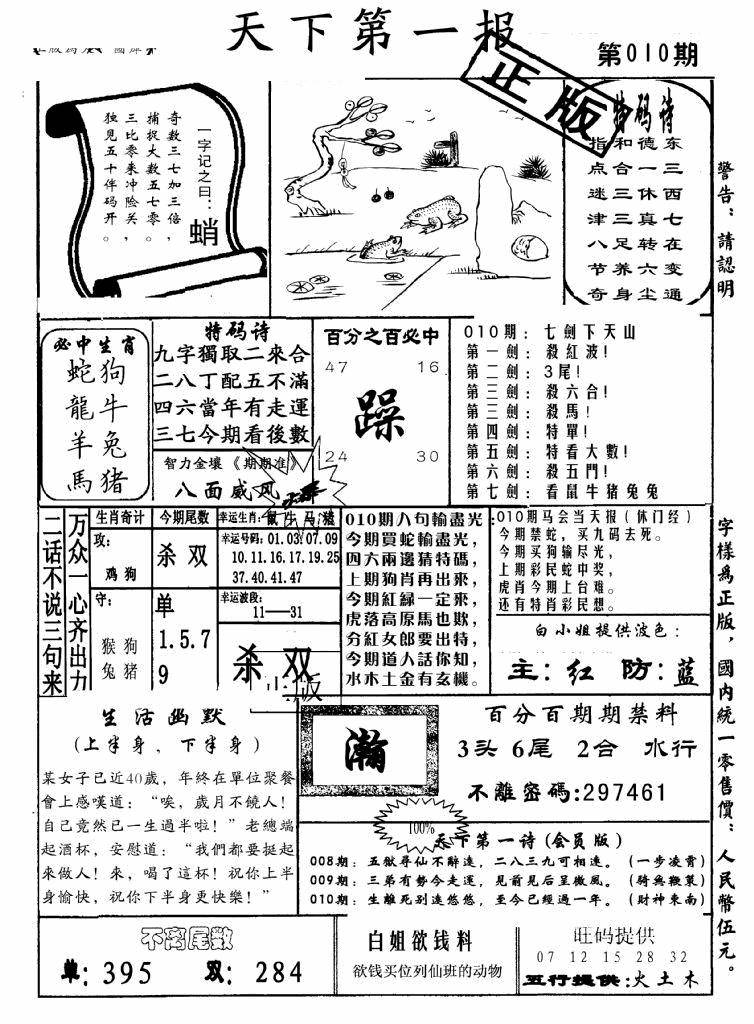 天下第一报
第010期
正版
一字记之曰：蛸
奇数三七加三倍，
捕捉大数五七零。
三比零来冲险关，
独见五十伴码开。
特码诗
东三西七在变通
德一休真转六尘
和合三三足养身
指点迷津八节奇
警告：請認明
字樣為正版，國内統一零售價：人民幣伍元。
必中生肖
蛇狗
龍牛
羊兔
馬猪
特码诗
九字獨取二來合
二八丁配五不滿
四六當年有走運
三七今期看後數
智力金壤《期期准》
八面威风
百分之百必中
47 16
躁
24 30
010期：七劍下天山
第一劍：殺紅波！
第二劍：3尾！
第三劍：殺六合！
第三劍：殺馬！
第四劍：特單！
第五劍：特看大數！
第六劍：殺五門！
第七劍：看鼠牛猪兔兔
二话不说三句来
万众一心齐出力
生肖奇计
攻：
鸡狗
守：
猴狗
兔猪
今期尾数
杀双
单
1.5.7
9
幸运生肖：鼠牛马猪
幸运号码：01.03.07.09
10.11.16.17.19.25
37.40.41.47
幸运波段：
11—31
杀双
正版
010期八句輸盡光
今期買蛇輸盡光，
四六兩邊猜特碼，
上期狗肖再出來，
今期紅緑一定來，
虎落高原馬也欺，
分紅女郎要出特，
今期道人話你知，
水木土金有玄機。
010期马会当天报（休门经）
今期禁蛇，买九码去死。
今期买狗输尽光，
上期彩民蛇中奖，
虎肖今期上台难。
还有特肖彩民想。
白小姐提供波色：
主：红 防：蓝
生活幽默
(上半身，下半身)
某女子已近40歲，年终在單位聚餐
會上感嘆道：“唉，歲月不饒人！
自己竟然已一生過半啦！”老總端
起酒杯，安慰道：“我們都要挺起
來做人！來，喝了這杯！祝你上半
身愉快，祝你下半身更快樂！”
瀚
百分百期期禁料
3头 6尾 2合 水行
不離密碼：297461
100%
天下第一诗(会员版)
008期：五獄尋仙不辭遠，二八三九可相連。（一步凌霄）
009期：三弟有勢今走運，見前見后呈微風。（騎無鞭策）
010期：生離死别遠悠悠，至今已經過一年。（財神東南）
不离尾数
单：395 双：284
白姐欲钱料
欲钱买位列仙班的动物
旺码提供
07 12 15 28 32
五行提供：火土木